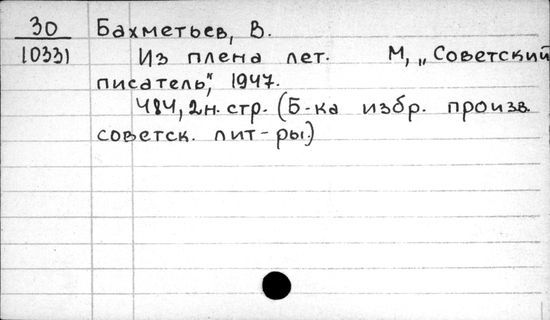 30 Бахметьев, В.
10331 Из плена лет. М, „Советский
писатель", 1947.
484, 2 н. стр. (Б-ка избр. произв.
советск. лит-ры.)